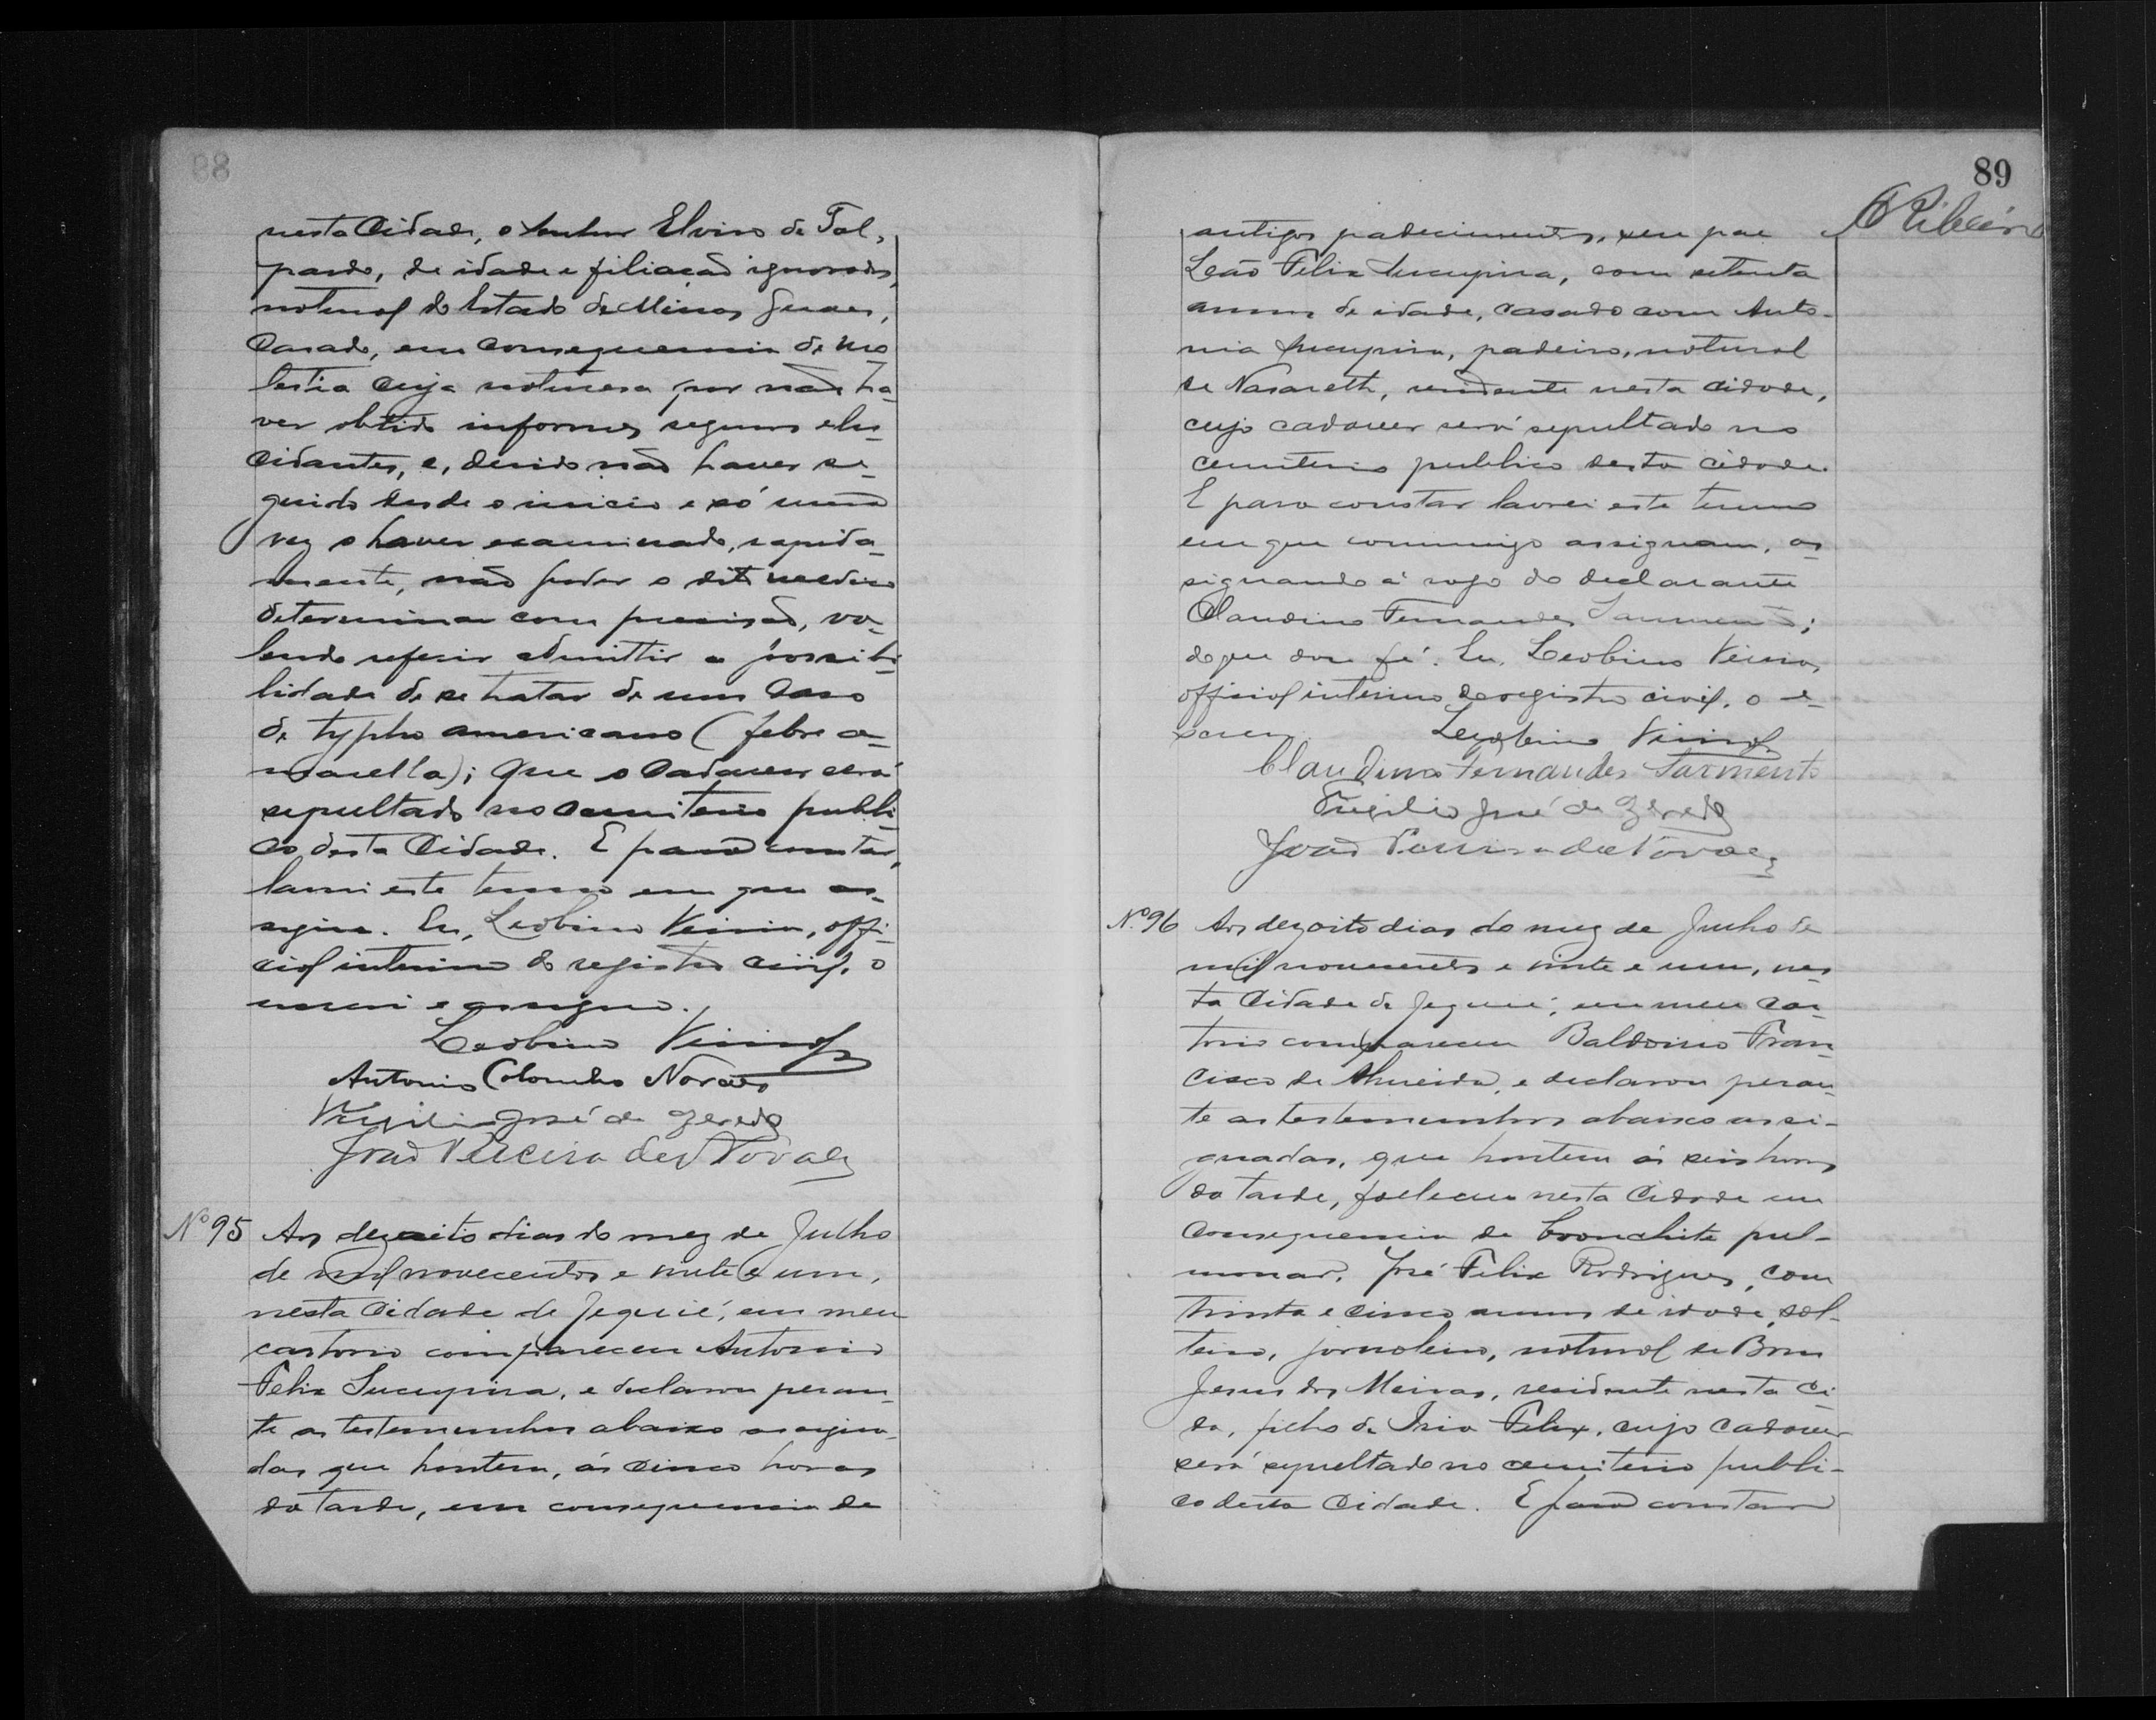 nesta Cidade, o Senhor Elvino de Tal,
pardo, de idade e filiação ignorados,
natural do Estado de Minas Geraes,
Casado, em consequencia de mo-
lestia cuja natureza por não ha-
ver obtido informes seguros elu-
cidantes, e, devido não haver se-
guido desde o inicio e só uma
vez o haver examinado, rapida-
mente, não poder o dito medico
determinar com precisão, 
 admittir a possibi-
lidade de se tratar de um caso
de typho americano (febre a-
marella); que o Cadaver será
sepultado no Cemiterio publi-
co desta Cidade. E para constar,
lavrei este termo em que as-
signa. Eu, Leobino, offi-
cial interino do registro civil, o
escrevi e assigno.
Leobino
Antonio Colombo Novaes
Virgilio José de
João Pereira de Novaes
Nº 95 Aos dezoito dias do mez de Julho
de mil novecentos e vinte e um,
nesta Cidade de Jequié, em meu
cartorio compareceu Antonio
Felix Sucupira, e declarou peran-
te as testemunhas abaixo assigna-
das que hontem, ás cinco horas
da tarde, em consequencia de
89
A Ribeiro
antigos padecimentos, seu pae
Leão Felix Sucupira, com setenta
annos de idade, casado com Anto-
nia Sucupira, padeiro, natural
de Nasareth, residente nesta cidade,
cujo cadaver será sepultado no
cemiterio publico desta cidade.
E para constar lavrei este termo
em que commigo assignam, as-
signando á rogo do declarante
Claudino Fernandes Sarmento;
do que dou fé. Eu, Leobino
official interino do registro civil, o e-
screvi. Leobino
Claudino Fernandes Sarmento
Virgilio José de
João Pereira de Novaes
Nº 96 Aos dezoito dias do mez de Julho de
mil novecentos e vinte e um, nes-
ta Cidade de Jequié, em meu car-
torio compareceu Baldoino Fran-
cisco de Almeida, e declarou peran-
te as testemunhas abaixo assi-
gnadas, que hontem ás seis horas
da tarde, falleceu nesta Cidade em
consequencia de bronchite pul-
monar, José Felix Rodrigues, com
trinta e cinco annos de idade, sol-
teiro, jornaleiro, natural de Bom
Jesus dos Meiras, residente nesta Ci-
da, filho de Felix, cujo cadaver
será sepultado no cemiterio publi-
co desta Cidade. E para constar